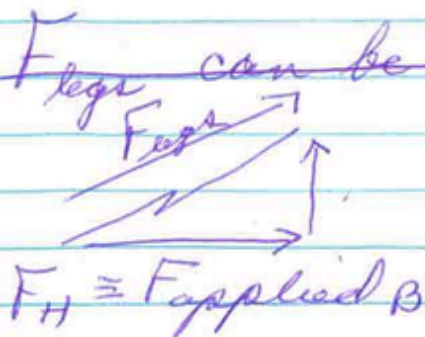 F legs can be
F legs
F H ≅ F applied B